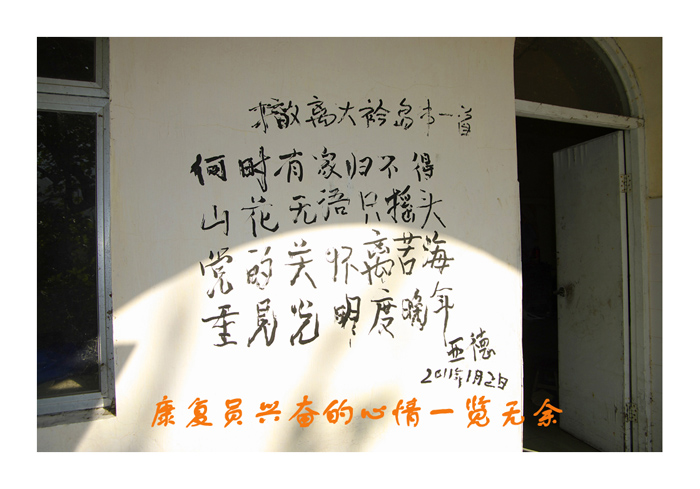 撤离大衿岛书一首
何时有家归不得
山花无语只摇头
党的关怀离苦海
重见光明度晚年
亚德
2011年1月2日
康复员兴奋的心情一览无余